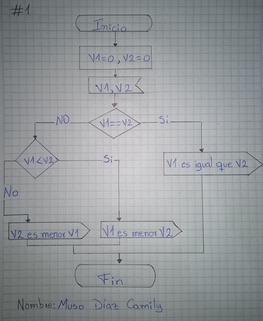 #1
Inicio
V1=0, V2=0
V1, V2
NO
V1==V2
Si
V1<V2
Si
V1 es igual que V2
No
V2 es menor V1
V1 es menor V2
Fin
Nombre: Muso Díaz Camily